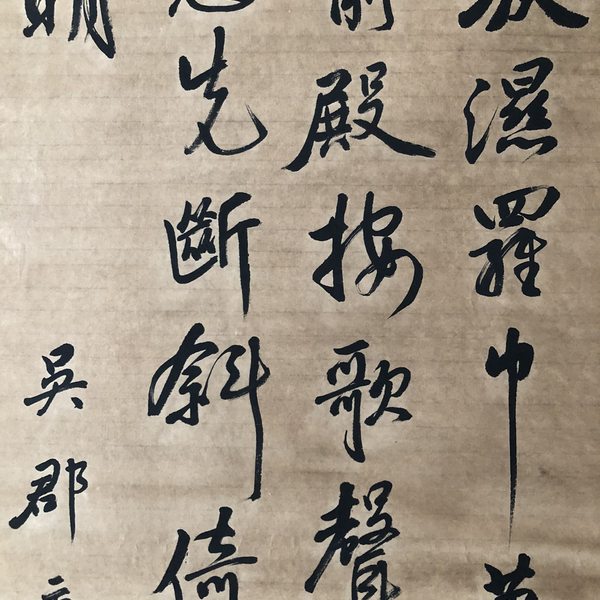 濕羅巾
前殿按歌聲
恩先斷斜倚
明
吳郡